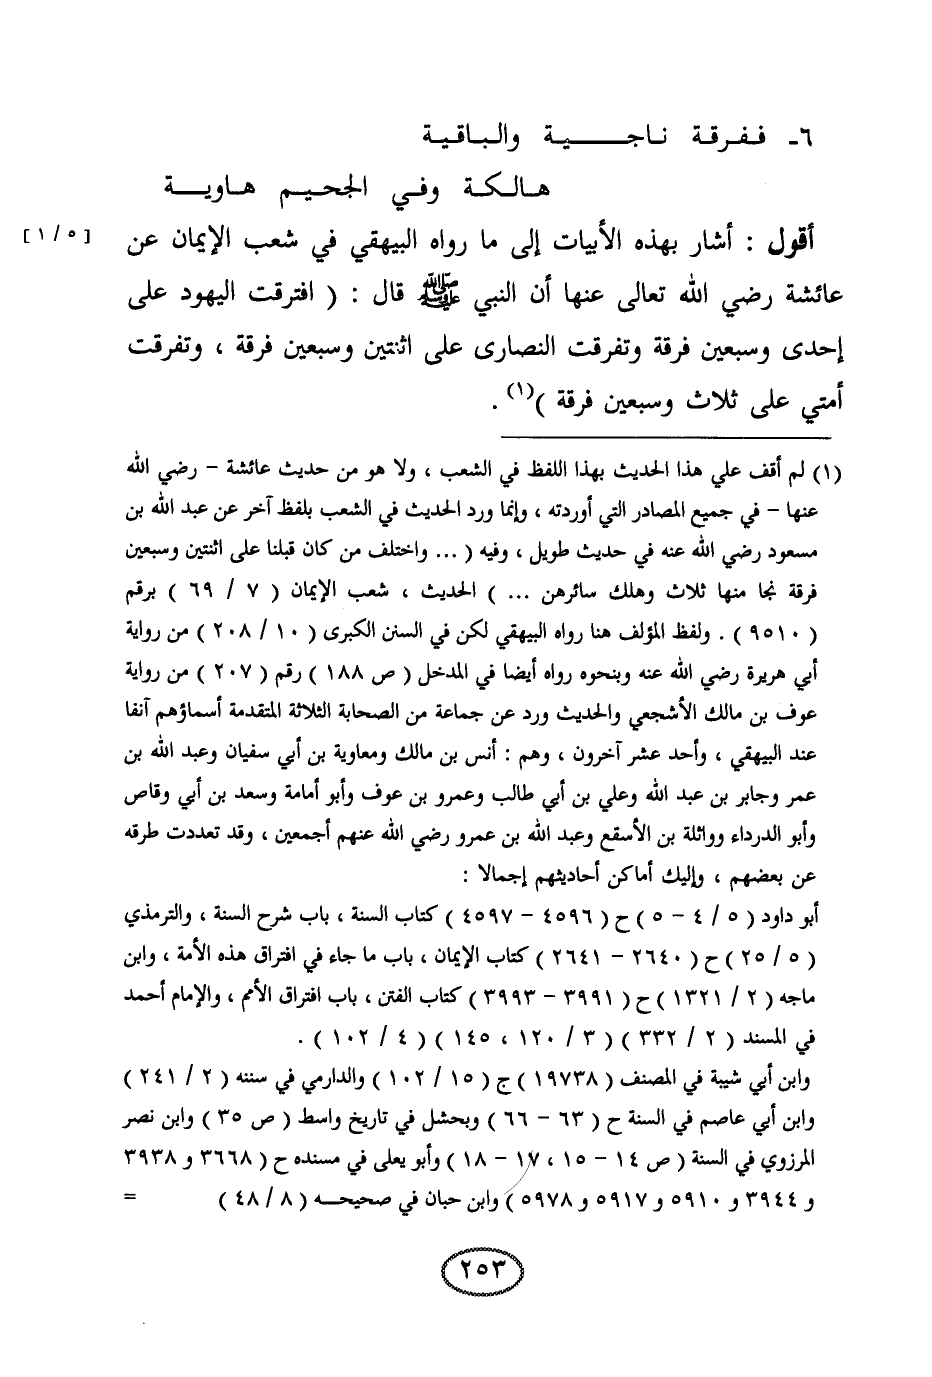 ٦ـ ففرقة ناجـــــية والباقية
هالكة وفي الجحيم هاويـــة
أقول : أشار بهذه الأبيات إلى ما رواه البيهقي في شعب الإيمان عن [ ٥ / ١ ]
عائشة رضي الله تعالى عنها أن النبي ﷺ قال : ( افترقت اليهود على
إحدى وسبعين فرقة وتفرقت النصارى على اثنتين وسبعين فرقة ، وتفرقت
أمتي على ثلاث وسبعين فرقة )(١) .
(١) لم أقف علي هذا الحديث بهذا اللفظ في الشعب ، ولا هو من حديث عائشة – رضي الله
عنها – في جميع المصادر التي أوردته ، وإنما ورد الحديث في الشعب بلفظ آخر عن عبد الله بن
مسعود رضي الله عنه في حديث طويل ، وفيه ( ... واختلف من كان قبلنا على اثنتين وسبعين
فرقة نجا منها ثلاث وهلك سائرهن ... ) الحديث ، شعب الإيمان ( ٧ / ٦٩ ) برقم
( ٩٥١٠ ) . ولفظ المؤلف هنا رواه البيهقي لكن في السنن الكبرى ( ١٠ / ٢٠٨ ) من رواية
أبي هريرة رضي الله عنه وبنحوه رواه أيضا في المدخل ( ص ١٨٨ ) رقم ( ٢٠٧ ) من رواية
عوف بن مالك الأشجعي والحديث ورد عن جماعة من الصحابة الثلاثة المتقدمة أسماؤهم آنفا
عند البيهقي ، وأحد عشر آخرون ، وهم : أنس بن مالك ومعاوية بن أبي سفيان وعبد الله بن
عمر وجابر بن عبد الله وعلي بن أبي طالب وعمرو بن عوف وأبو أمامة وسعد بن أبي وقاص
وأبو الدرداء وواثلة بن الأسقع وعبد الله بن عمرو رضي الله عنهم أجمعين ، وقد تعددت طرقه
عن بعضهم ، وإليك أماكن أحاديثهم إجمالا :
أبو داود ( ٥ / ٤ – ٥ ) ح ( ٤٥٩٦ – ٤٥٩٧ ) كتاب السنة ، باب شرح السنة ، والترمذي
( ٥ / ٢٥ ) ح ( ٢٦٤٠ – ٢٦٤١ ) كتاب الإيمان ، باب ما جاء في افتراق هذه الأمة ، وابن
ماجه ( ٢ / ١٣٢١ ) ح ( ٣٩٩١ – ٣٩٩٣ ) كتاب الفتن ، باب افتراق الأمم ، والإمام أحمد
في المسند ( ٢ / ٣٣٢ ) ( ٣ / ١٢٠ ، ١٤٥ ) ( ٤ / ١٠٢ ) .
وابن أبي شيبة في المصنف ( ١٩٧٣٨ ) ج ( ١٥ / ١٠٢ ) والدارمي في سننه ( ٢ / ٢٤١ )
وابن أبي عاصم في السنة ح ( ٦٣ – ٦٦ ) وبحشل في تاريخ واسط ( ص ٣٥ ) وابن نصر
المرزوي في السنة ( ص ١٤ – ١٥ ، ١٧ – ١٨ ) وأبو يعلى في مسنده ح ( ٣٦٦٨ و ٣٩٣٨
و ٣٩٤٤ و ٥٩١٠ و ٥٩١٧ و ٥٩٧٨ ) وابن حبان في صحيحـــه ( ٨ / ٤٨ ) =
٢٥٣